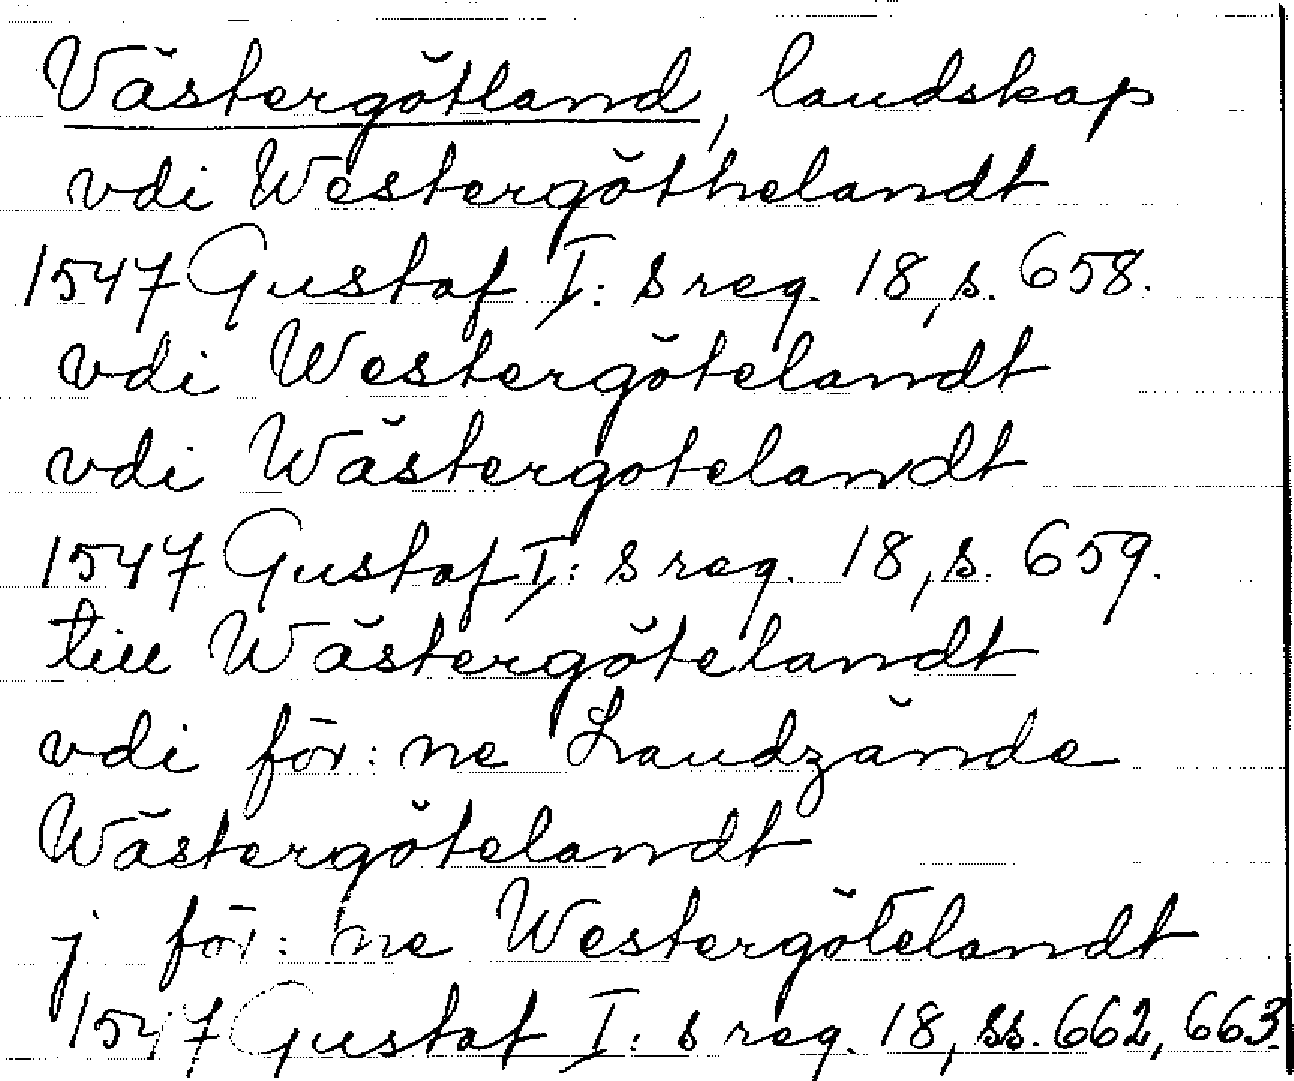 Västergötland, landskap
vdi Westergöthelandt
1547 Gustaf I: s reg. 18, s. 658.
vdi Westergötelandt
vdi Wästergotelandt
1547 Gustaf I: s reg. 18, s. 659.
till Wästergötelandt
vdi för: ne Landzände
Wästergötelandt
j för: ne Westergötelandt
1547 Gustaf I: s reg. 18, ss. 662, 663.